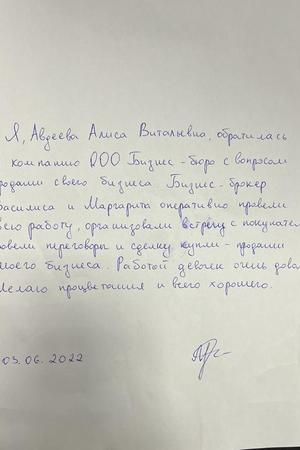 Я, Авдеева Алиса Витальевна, обратилась
компанию ООО Бизнес-бюро с вопросом
родажи своего бизнеса. Бизнес-брокер
асилиса и Маргарита оперативно провели
всю работу, организовали встречу с покупател
ровели переговоры и сделку купли-продажи
моего бизнеса. Работой девочек очень довол
Желаю процветания и всего хорошего.
03.06.2022